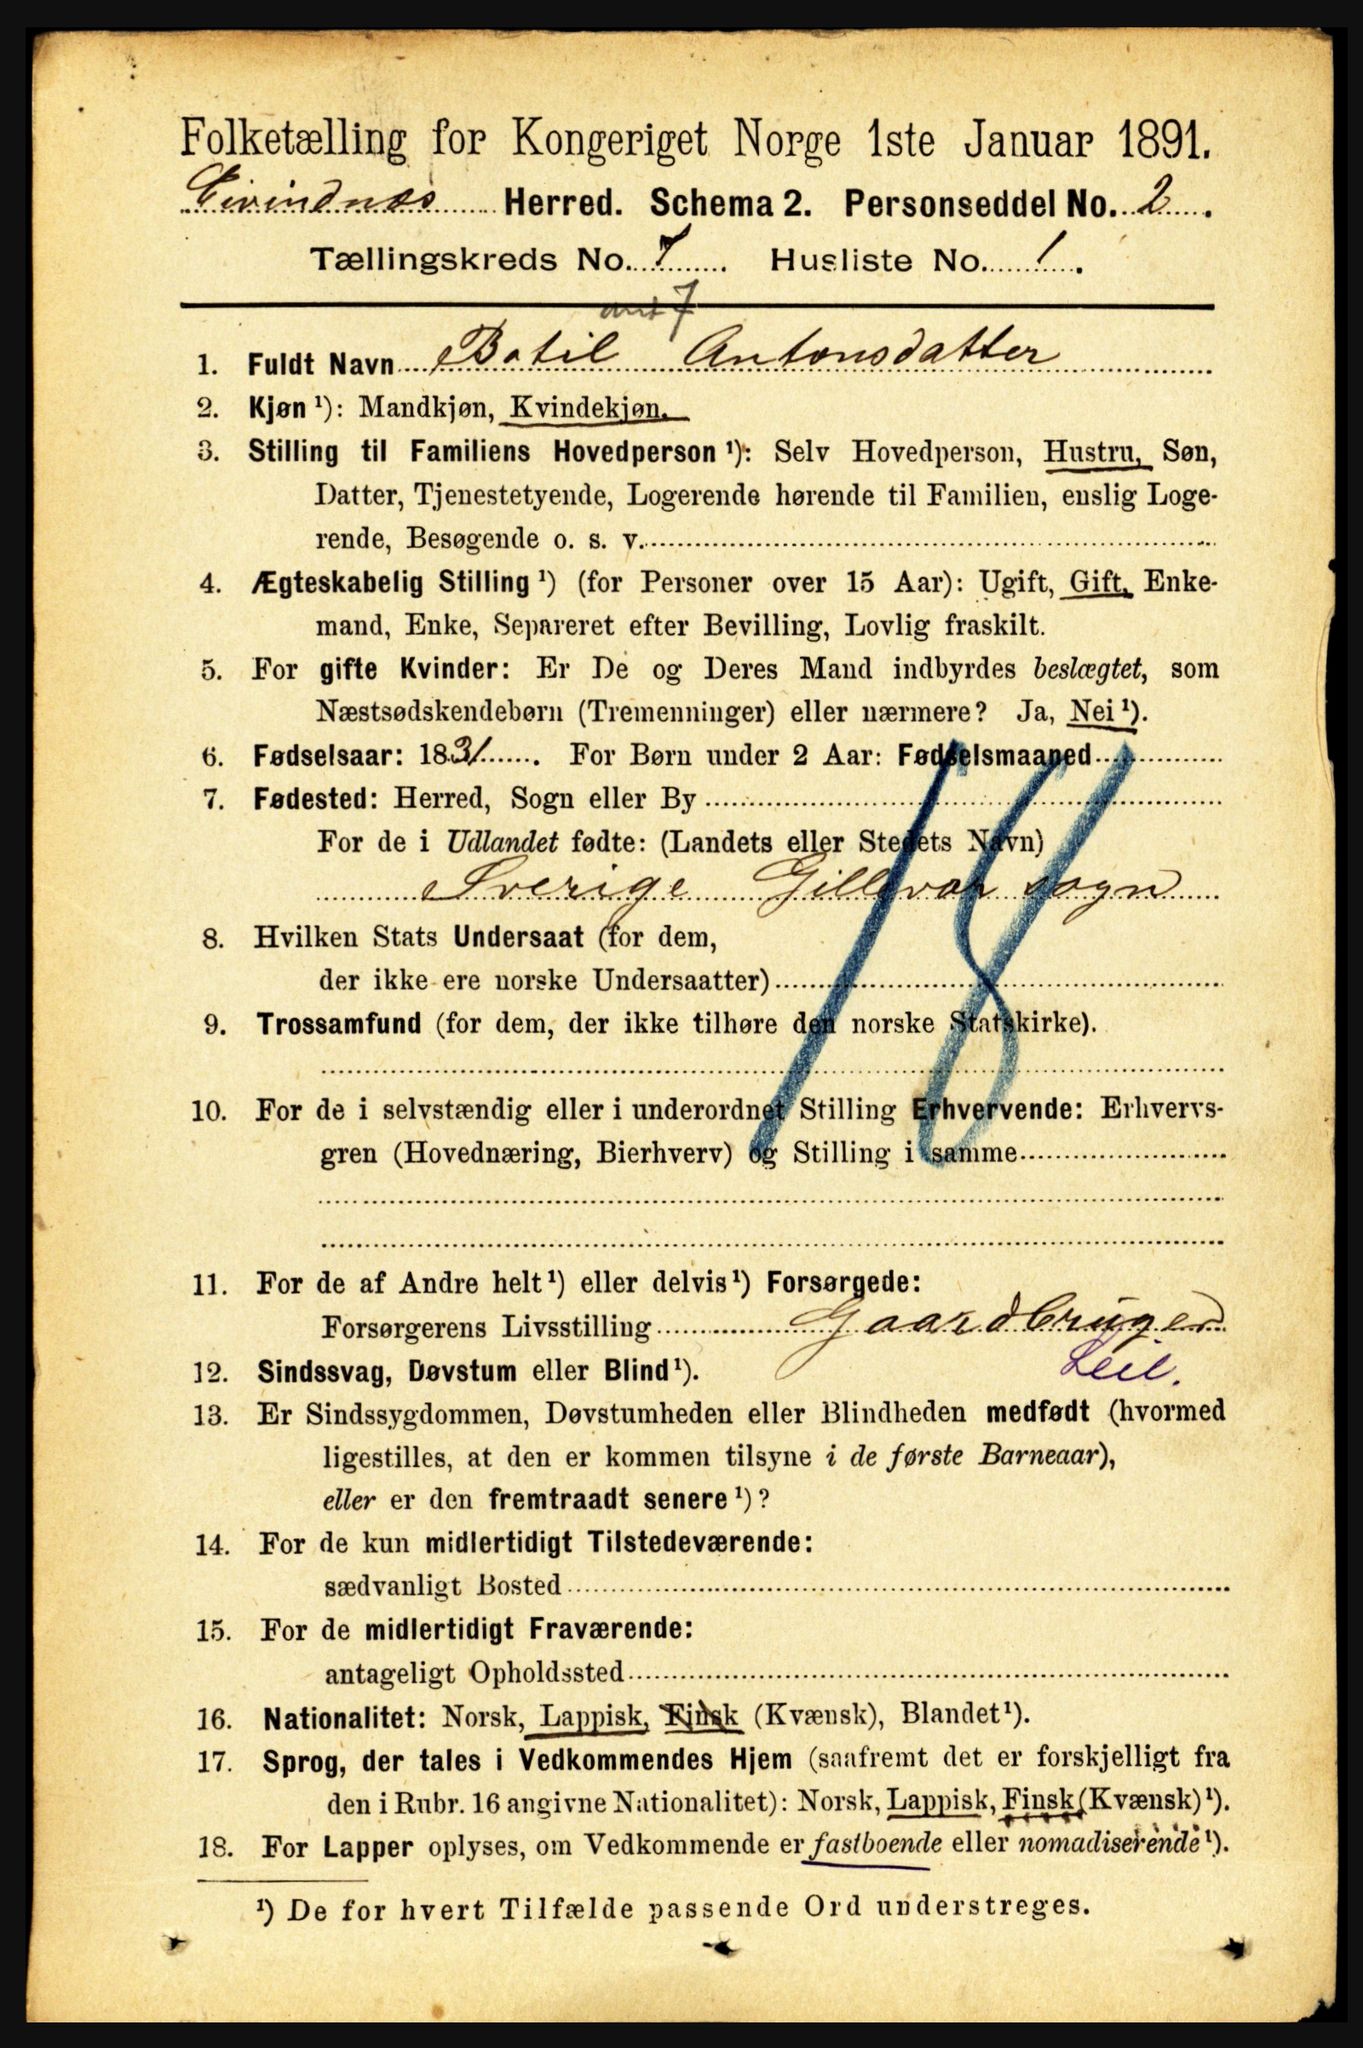 Folketælling for Kongeriget Norge 1ste Januar 1891.
Eivindnæs Herred. Schema 2. Personseddel No. 2.
Tællingskreds No. 7. Husliste No. 1.
7
1. Fuldt Navn Botil Antonsdatter
2. Kjøn ¹): Mandkjøn, Kvindekjøn.
3. Stilling til Familiens Hovedperson ¹): Selv Hovedperson, Hustru, Søn,
Datter, Tjenestetyende, Logerende hørende til Familien, enslig Loge-
rende, Besøgende o. s. v.
4. Ægteskabelig Stilling ¹) (for Personer over 15 Aar): Ugift, Gift, Enke-
mand, Enke, Separeret efter Bevilling, Lovlig fraskilt.
5. For gifte Kvinder: Er De og Deres Mand indbyrdes beslægtet, som
Næstsødskendebørn (Tremenninger) eller nærmere? Ja, Nei ¹).
6. Fødselsaar: 1831. For Børn under 2 Aar: Fødselsmaaned
7. Fødested: Herred, Sogn eller By
For de i Udlandet fødte: (Landets eller Stedets Navn)
Sverige Gillevar sogn
18
8. Hvilken Stats Undersaat (for dem,
der ikke ere norske Undersaatter)
9. Trossamfund (for dem, der ikke tilhøre den norske Statskirke).
10. For de i selvstændig eller i underordnet Stilling Erhvervende: Erhvervs-
gren (Hovednæring, Bierhverv) og Stilling i samme
11. For de af Andre helt ¹) eller delvis ¹) Forsørgede:
Forsørgerens Livsstilling Gaardbruger
Leil.
12. Sindssvag, Døvstum eller Blind ¹).
13. Er Sindssygdommen, Døvstumheden eller Blindheden medfødt (hvormed
ligestilles, at den er kommen tilsyne i de første Barneaar),
eller er den fremtraadt senere ¹)?
14. For de kun midlertidigt Tilstedeværende:
sædvanligt Bosted
15. For de midlertidigt Fraværende:
antageligt Opholdssted
16. Nationalitet: Norsk, Lappisk, Finsk (Kvænsk), Blandet ¹).
17. Sprog, der tales i Vedkommendes Hjem (saafremt det er forskjelligt fra
den i Rubr. 16 angivne Nationalitet): Norsk, Lappisk, Finsk (Kvænsk) ¹).
18. For Lapper oplyses, om Vedkommende er fastboende eller nomadiserende ¹).
¹) De for hvert Tilfælde passende Ord understreges.